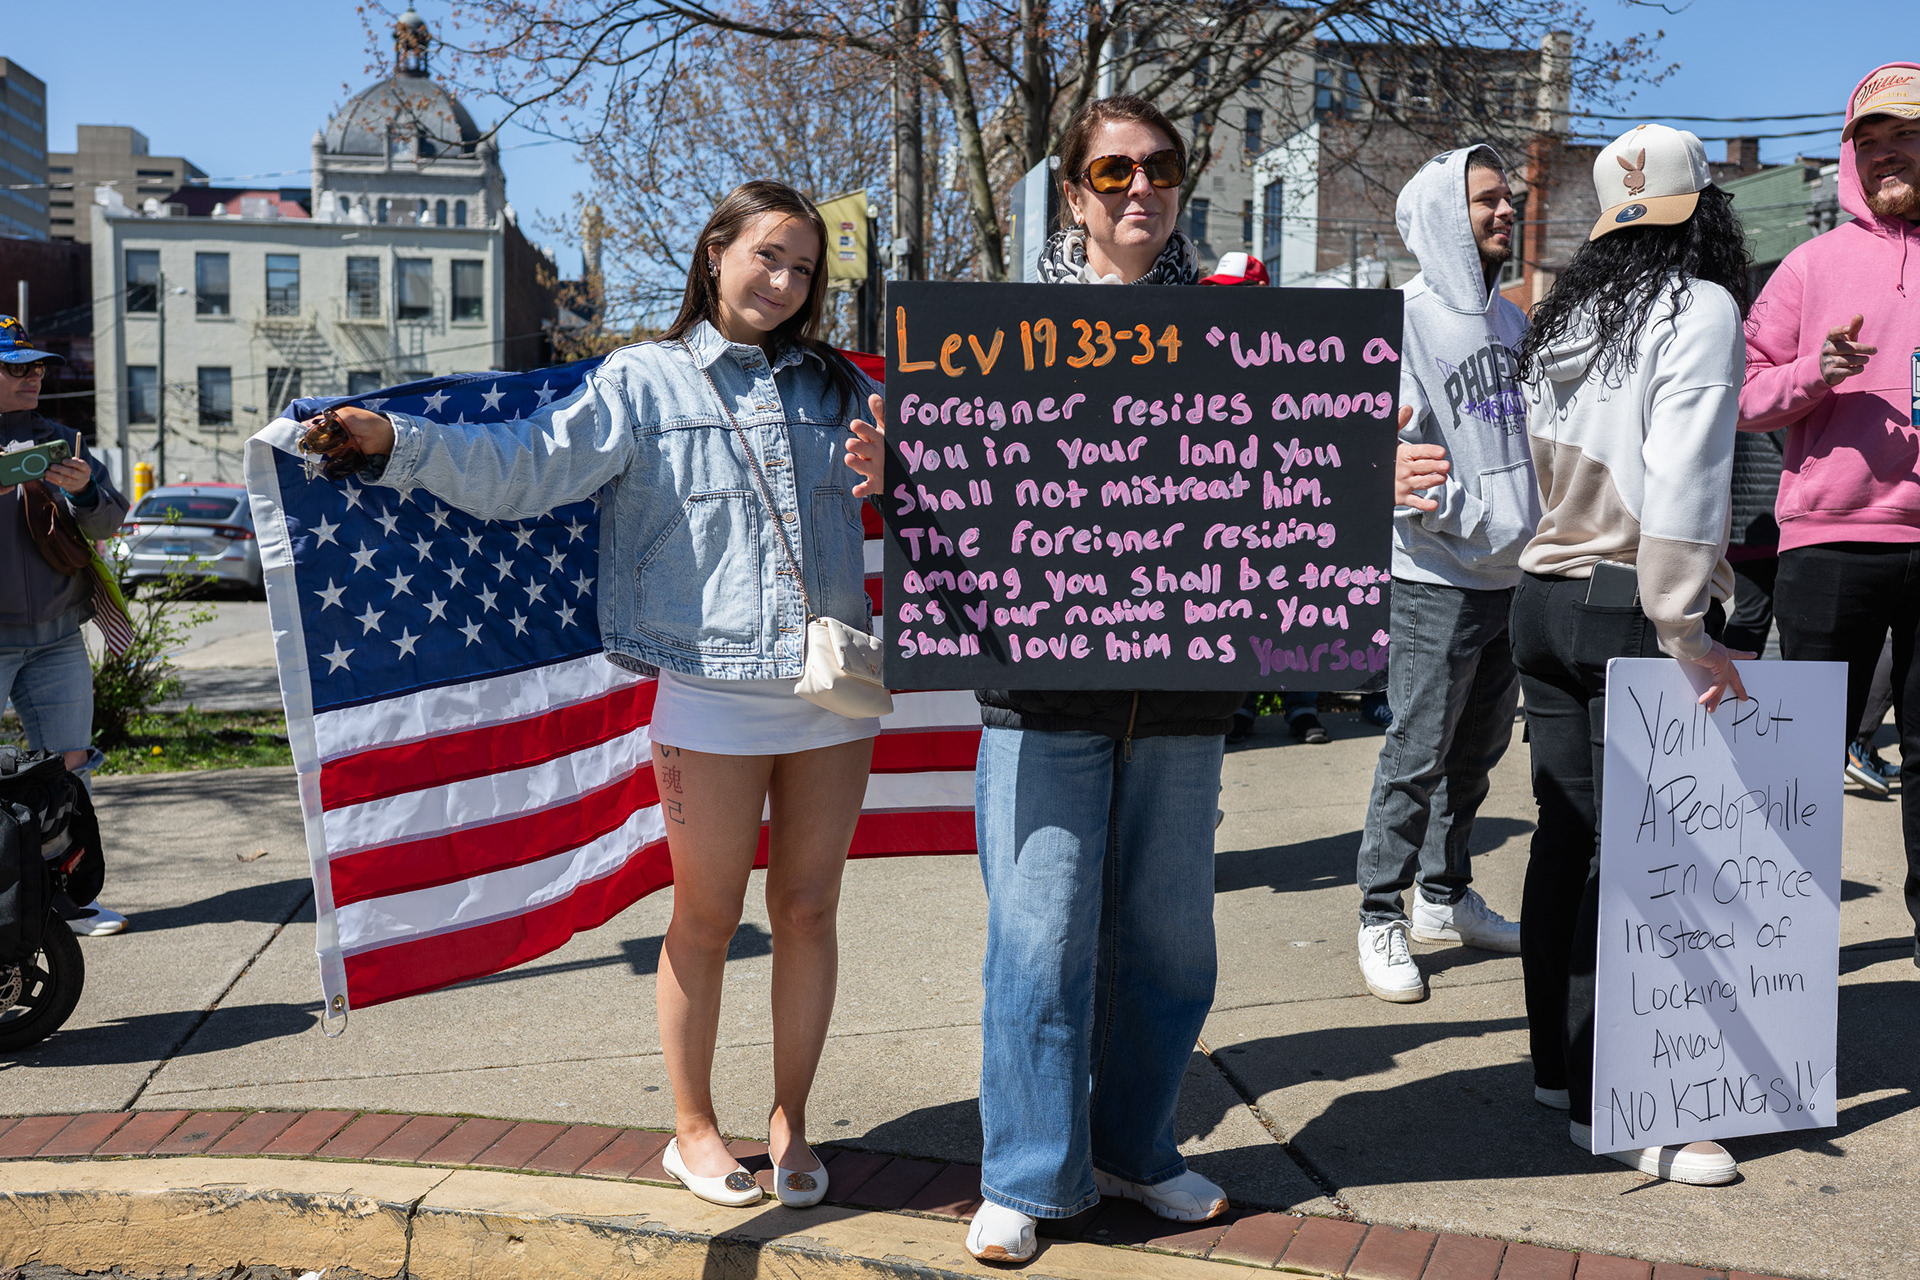 Lev 19 33-34 "When a
foreigner resides among
you in your land you
shall not mistreat him.
The foreigner residing
among you shall be treat
ed
as your native born. You
shall love him as yourself"
Yall Put
A Pedophile
In Office
Instead of
Locking him
Away
NO KINGS!!
Miller
魂
己